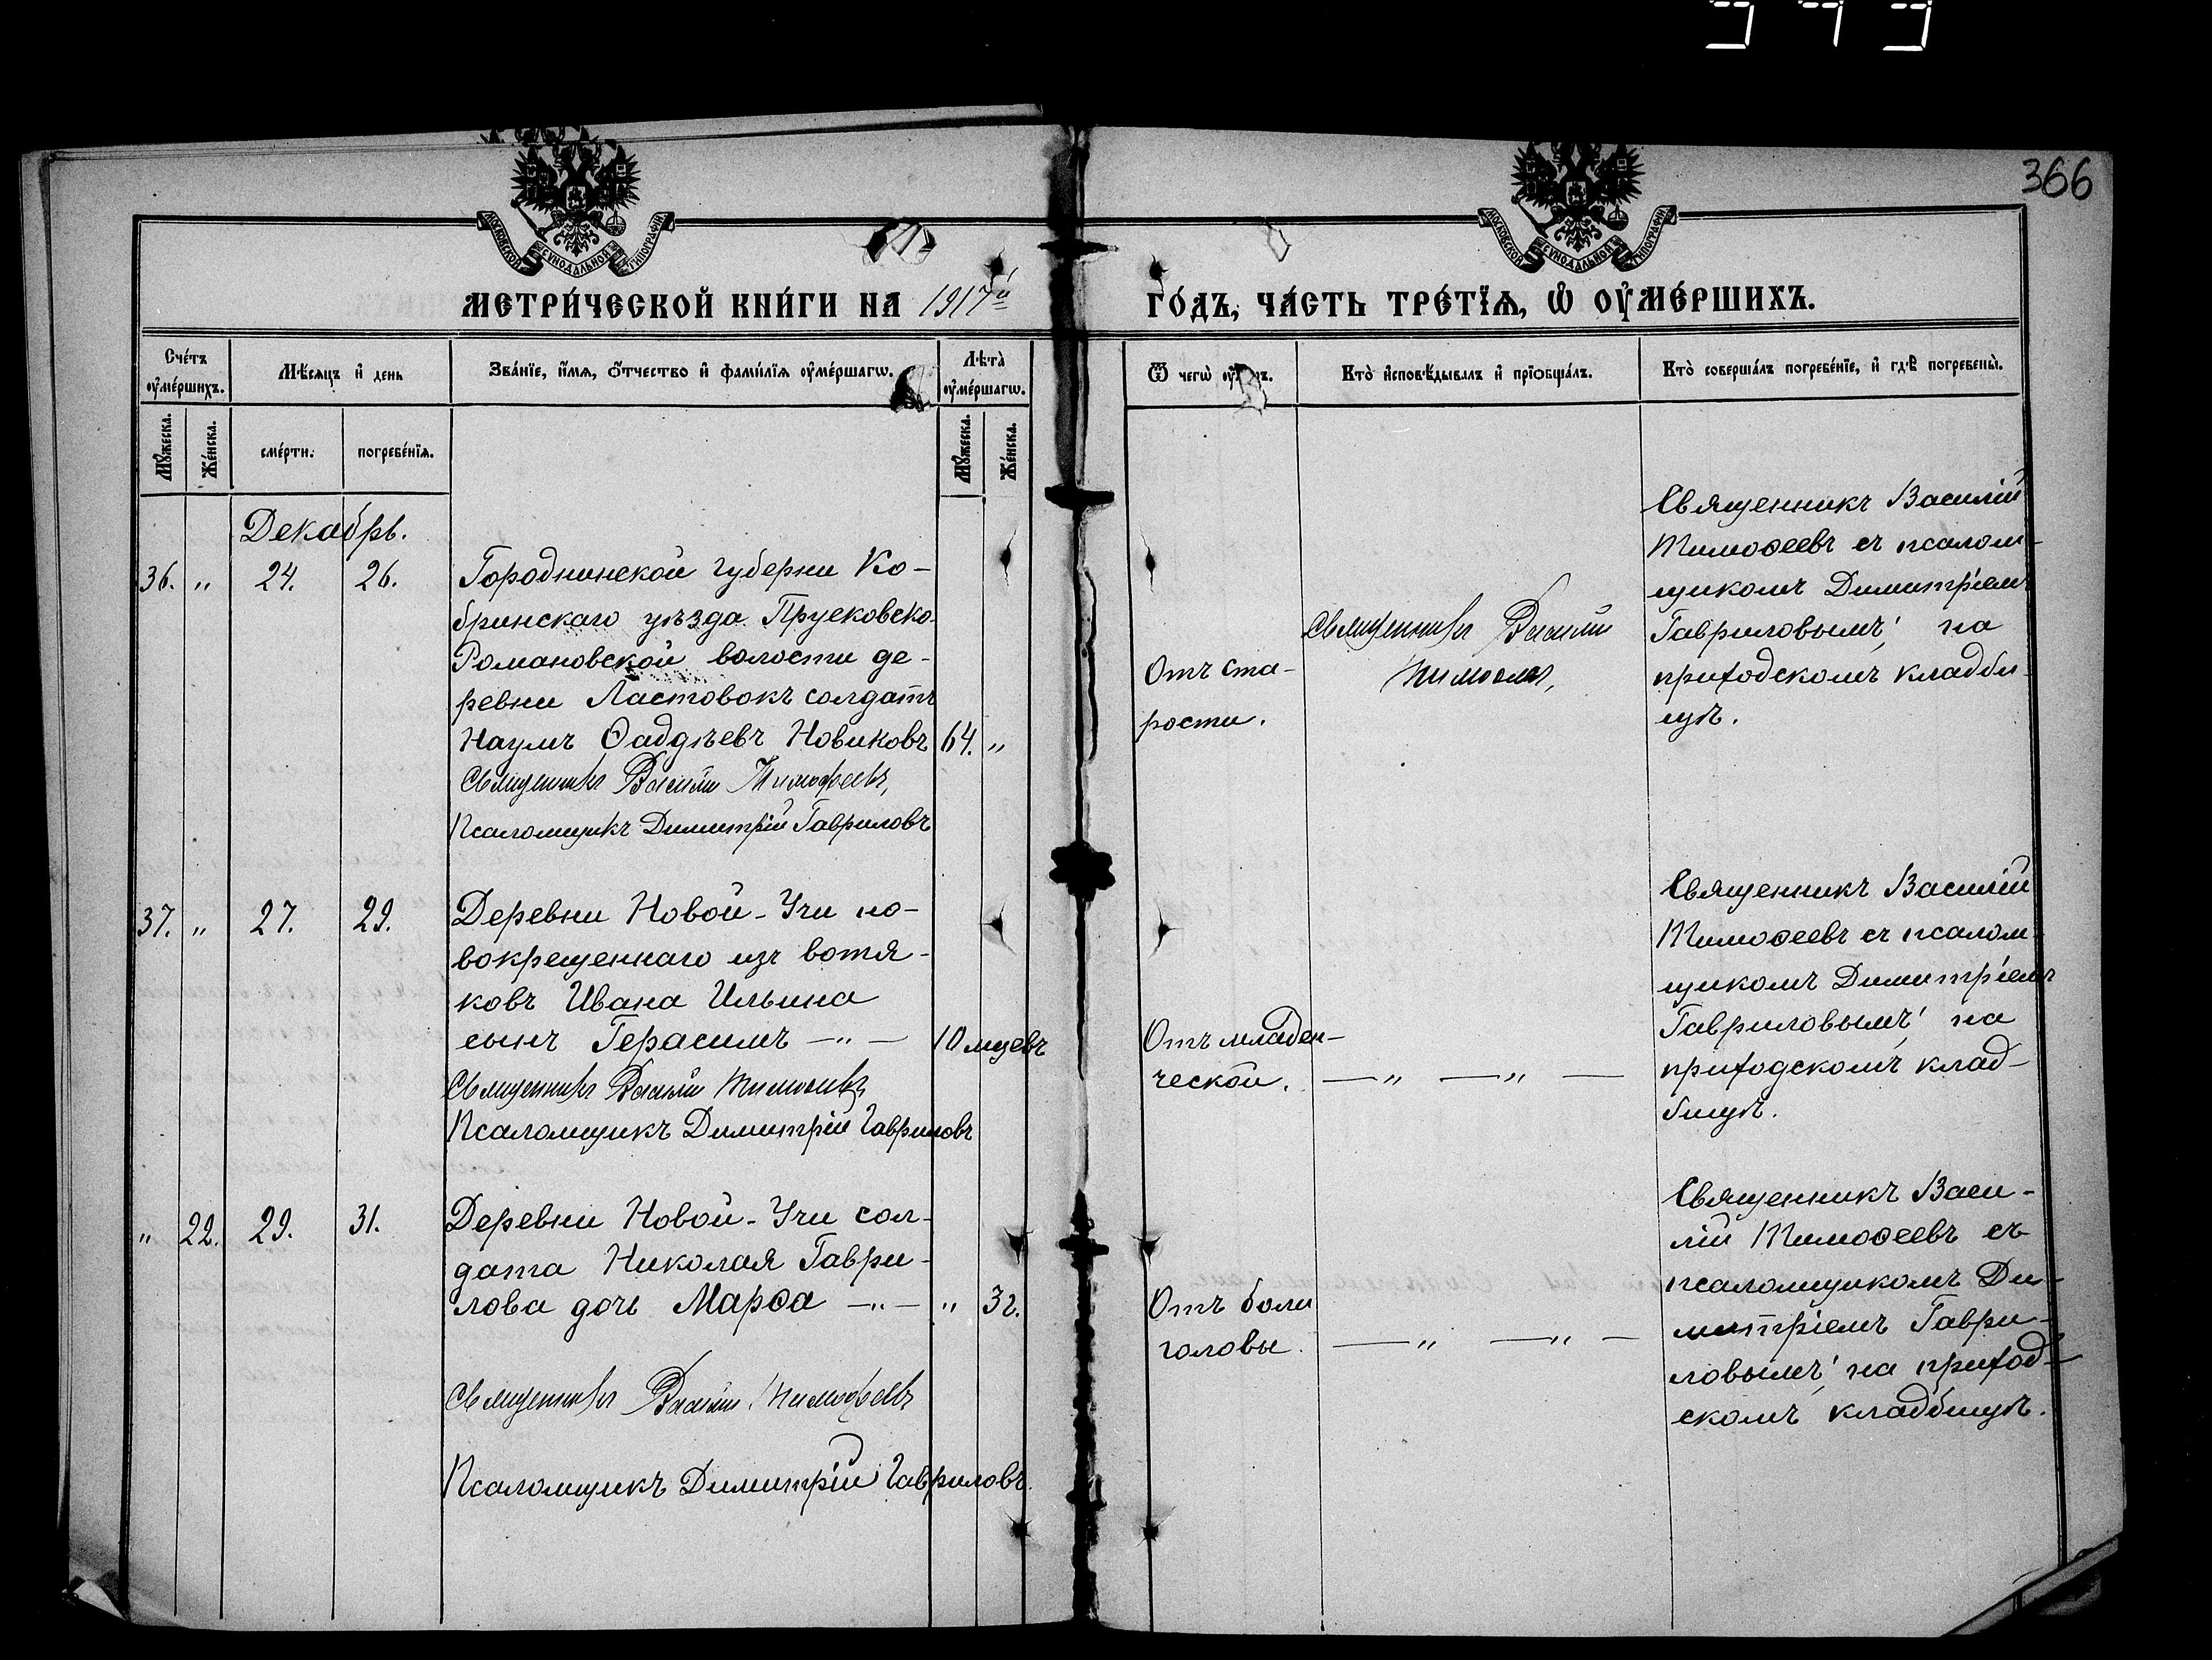 366
МОСКОВСКОЙ СѴНОДАЛЬНОЙ ТИПОГРАФІИ
МОСКОВСКОЙ СѴНОДАЛЬНОЙ ТИПОГРАФІИ
МЕТРИ́ЧЕСКОЙ КНИ́ГИ НА 1917й ГО́ДЪ, ЧА́СТЬ ТРЕ́ТЇѦ, Ѡ҆ ОУ҆МЕ́РШИХЪ.
Сче́тъ оу҆ме́ршихъ.
Мѣ́сѧцъ и҆ день
Зва́нїе, и҆́мѧ, ѻ҆́тчество и҆ фами́лїѧ оу҆ме́ршагѡ.
Лѣта̀ оу҆ме́ршагѡ.
Ѿ чегѡ̀
Кто̀ и҆сповѣ́дывалъ и҆ прїѻбща́лъ.
Кто̀ соверша́лъ погребе́нїе, и҆ гдѣ̀ погребены̀.
Мꙋ́жеска.
Же́нска.
сме́рти.
погребе́нїѧ.
Мꙋ́жеска.
Же́нска.
Декабрь.
36. " 24. 26.
Городнинской губерни Ко-
бринскаго уѣзда Прусковско-
Романовской волости де-
ревни Ластовокъ солдатъ
Наумъ Ѳаддѣевъ Новиковъ 64. "
Священникъ Василій Тимофеевъ,
Псаломщикъ Димитрій Гавриловъ
Отъ ста-
рости.
Священникъ Василій
Священникъ Василій
Тимоѳеевъ съ псалом-
щикомъ Димитріемъ
Гавриловымъ, на
приходскомъ кладби-
щѣ.
37. " 27. 29.
Деревни Новой-Учи но-
вокрещеннаго изъ вотя-
ковъ Ивана Ильина
сынъ Герасимъ —"— 10 мцевъ
Священникъ Василій Тимоѳеевъ
Псаломщикъ Димитрій Гавриловъ
Отъ младен-
ческой. —" —" —
Священникъ Василій
Тимоѳеевъ съ псалом-
щикомъ Димитріемъ
Гавриловымъ, на
приходскомъ клад-
бищѣ.
" 22. 29. 31.
Деревни Новой-Учи сол-
дата Николая Гаври-
лова дочь Марѳа —"— " 3г.
Священникъ Василій Тимофеевъ
Псаломщикъ Димитрій Гавриловъ.
Отъ боли
головы. —" —" —
Священникъ Васи-
лій Тимоѳеевъ съ
псаломщикомъ Ди-
митріемъ Гаври-
ловымъ, на приход-
скомъ кладбищѣ.